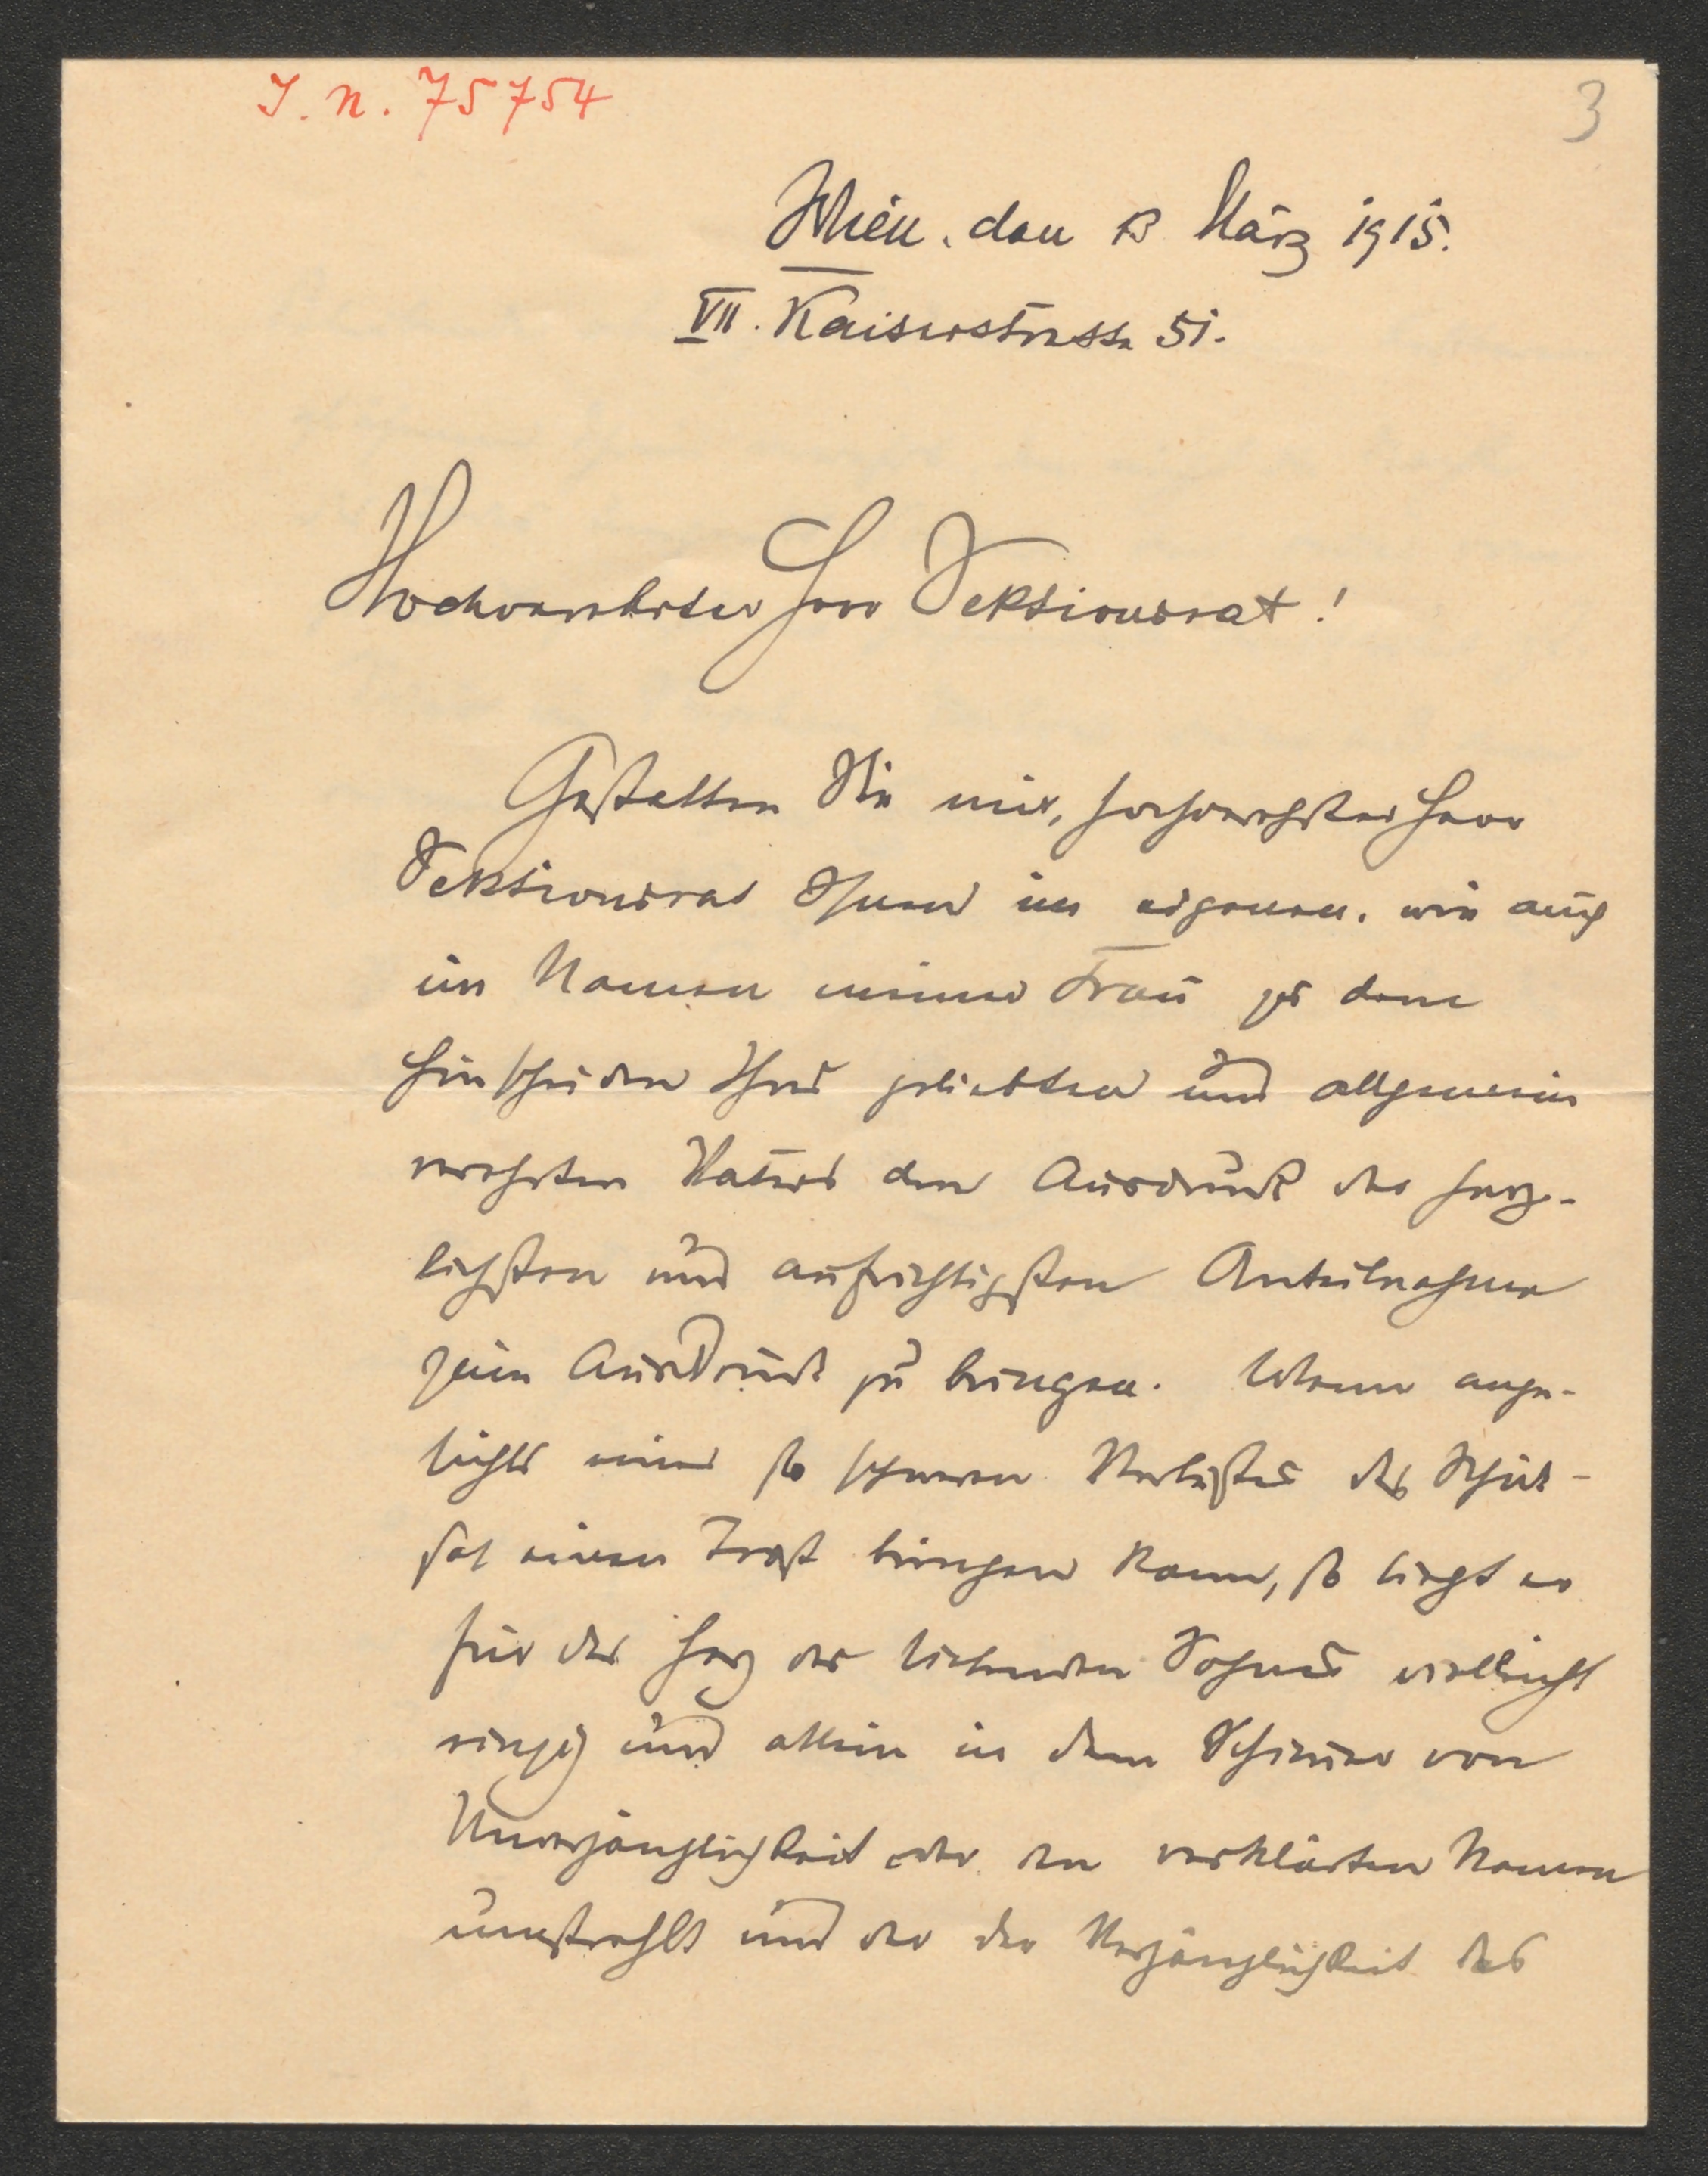 I. N. 75754
3
Wien, den 13 März 1915.
VII. Kaiserstrasse 51.
Hochverehrter Herr Sektionsrat!
Gestatten Sie mir, hochverehrter Herr
Sektionsrat Ihnen im eigenen, wie auch
im Namen meiner Frau zu dem
Hinscheiden Ihres geliebten und allgemein
verehrten Vaters den Ausdruck der herz-
lichsten und aufrichtigsten Anteilnahme
zum Ausdruck zu bringen. Wenn ange-
sichts eines so schweren Verlustes das Schick-
sal einen Trost bringen kann, so liegt er
für das Herz des liebenden Sohnes vielleicht
einzig und allein in dem Schimmer von
Unvergänglichkeit der den verklärten Namen
umstrahlt und der der Vergänglichkeit des